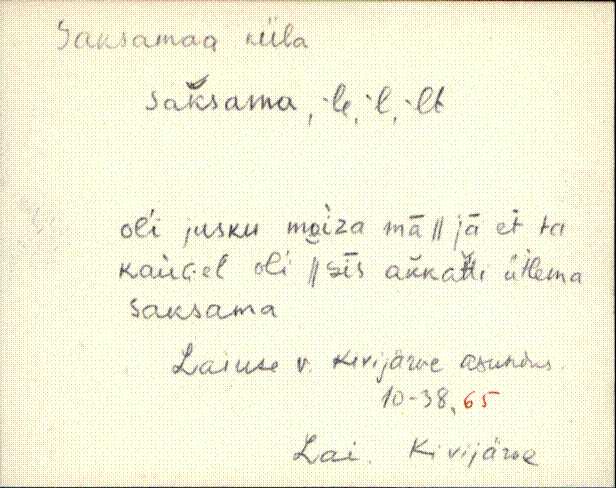 Saksamaa küla
sak̆sama, -le, -l, -lt
oĺi jusku moiza mā || jā et ta
kaùG·el oĺi || sīs ak̆kat̆ti üt̀lema
saksama
Laiuse v. Kivijärve asundus.
10-38, 65
Lai. Kivijärve